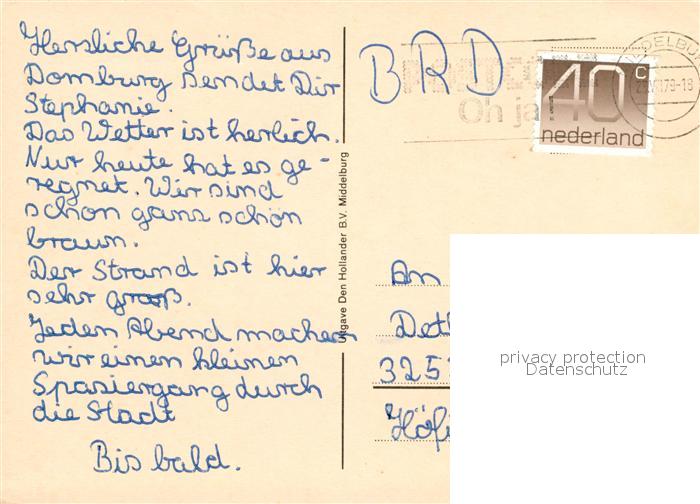 Herzliche Grüße aus
Domburg sendet Dir
Stephanie.
Das Wetter ist herlich.
Nur heute hat es ge-
regnet. Wir sind
schon ganz schön
braun.
Der Strand ist hier
sehr groß.
Jeden Abend machen
wir einen kleinen
Spaziergang durch
die Stadt
Bis bald.
Uitgave Den Hollander B.V. Middelburg
BRD
Oh ja
40 c
nederland
An
Det
325
Höfi
privacy protection
Datenschutz